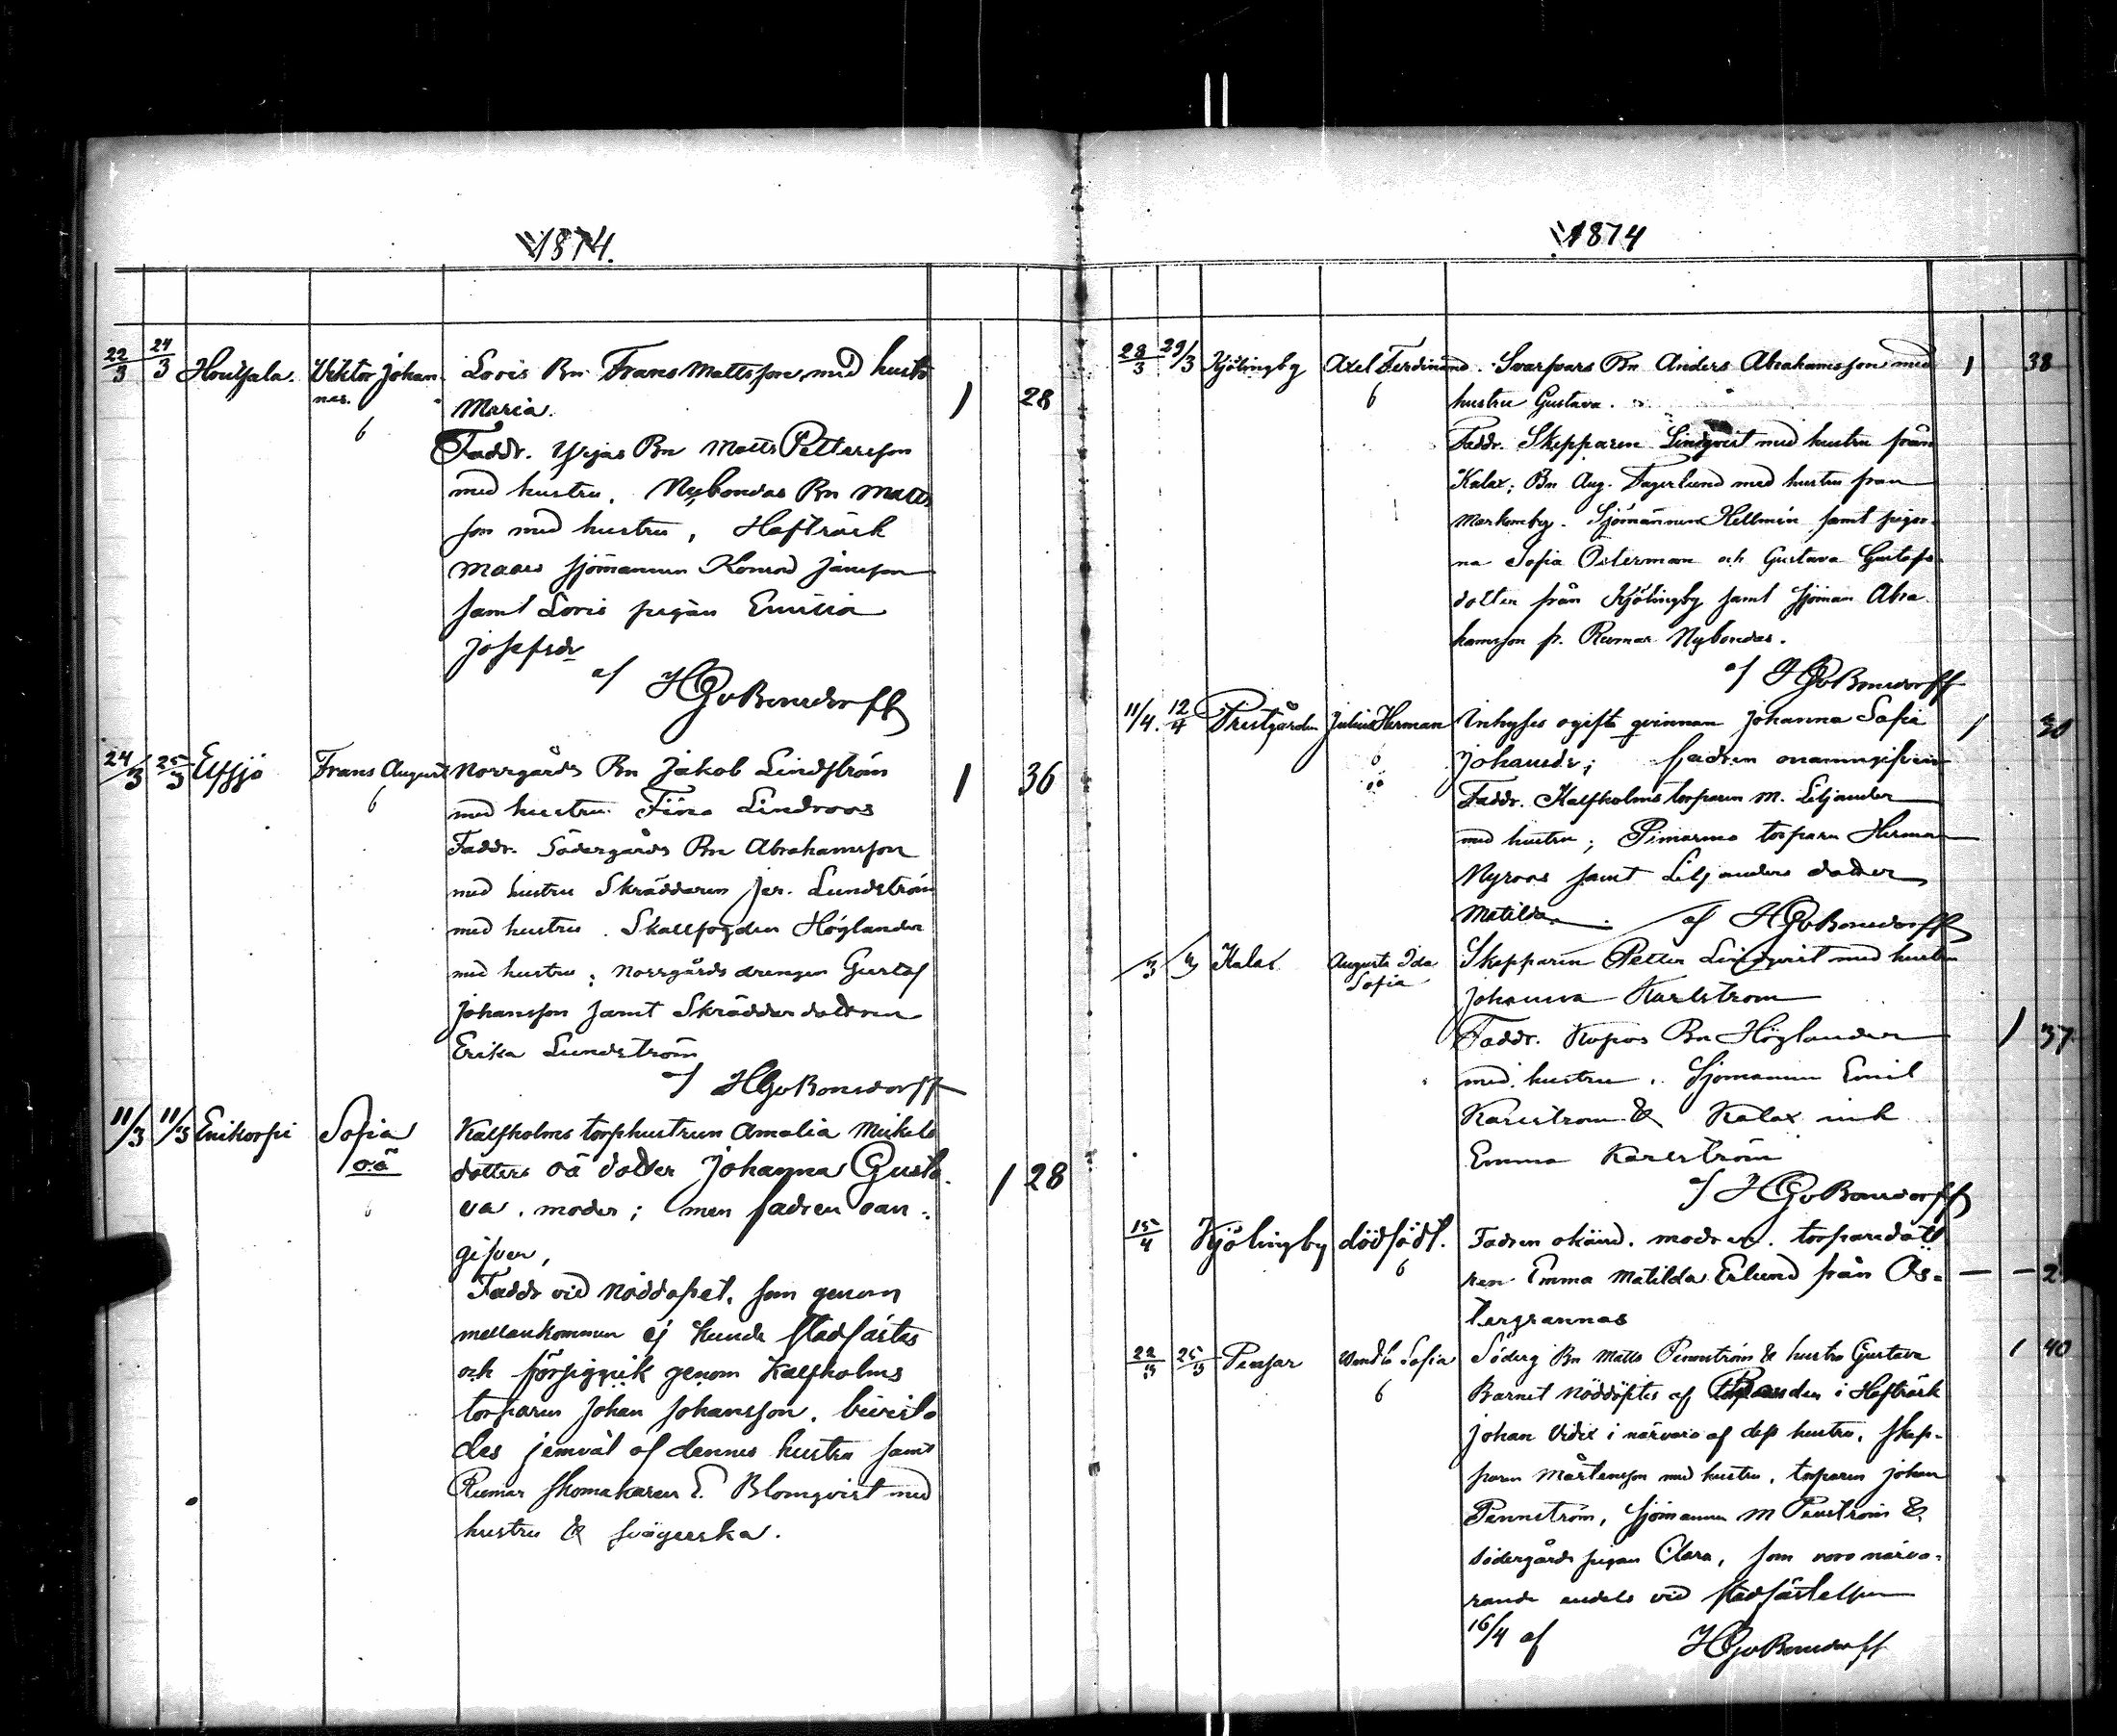 1874.
22/3 24/3 Houtsala. Viktor Johan- Loris Bn Frans Mattsson med hustru
nes. Maria. 1 28
6
Faddr. Yrjas Bn Matts Pettersson
med hustru. Nybondas Bn Matts
son med hustru, Hafträsk
Maars sjömannen Konrad Jansson
samt Loris pigan Emilia
Josefsdr
af HGvBonsdorff
24/3 25/3 Elfsjö Frans August Norrgårds Bn Jakob Lindström
6 med hustru Fina Lindroos 1 36
Faddr. Södergårds Bn Abrahamsson
med hustru Skräddaren Jer. Lundström
med hustru. Skallfogden Höglander
med hustru; Norrgårds drengen Gustaf
Johansson samt Skräddar dottren
Erika Lundström
af HGvBonsdorff
11/3 11/3 Enikorpi Sofia Kalfholms torphustrun Amalia Mickels
oä dotters oä dotter Johanna Gusta- 1 28
va. moder; men fadren oan-
gifven,
Faddr vid nöddopet, som genom
mellankommen ej kunde stadfästas
och försiggick genom Kalfholms
torparen Johan Johansson. bivista-
des jemväl af dennes hustru samt
Rumar skomakaren E. Blomqvist med
hustru & svägerska.
1874
28/3 29/3 Kjölingby Axel Ferdinand. Svarfvars Bn Anders Abrahamsson med 1 38
6 hustru Gustava.
Faddr. Skepparen Lindqvist med hustru från
Kalax; Bn Aug. Fagerlund med hustru från
Markomby. Sjömannen Hellmén samt pigor-
na Sofia Österman och Gustava Gustafs-
dotter från Kjölingby samt sjöman Abra-
hamsson fr. Rumar Nybondas.
af HGvBonsdorff
11/4. 12/4 Prestgården Julius Herman Inhyses ogifta qvinnan Johanna Sofia 1 20
6 Johansdr; fadren onamngifven
oä Faddr. Kalfholms torparen M. Liljander
med hustru; Pimarmo torparn Herman
Nyroos samt Liljanders dotter
Matilda. af HGvBonsdorff
Kalax Augusta Ida Skepparen Petter Lindqvist med hustru
Sofia Johanna Karlström
Faddr. Kopos Bn Höglander 1 37
med hustru. Sjömannen Emil
Karlström & Kalax
Emma Karlström
af HGvBonsdorff
15/4 Kjölingby dödfödt. Fadren okänd. modren. torparedott
6 ren Emma Matilda Erlund från Ös- — — 2
tergrannas
22/3 25/3 Pensar Wendla Sofia Söderg Bn Matts Pennström & hustru Gustava 1 40
6 Barnet nöddöptes af Bonden i Hafträsk
Johan Videx i närvaro af dess hustru, skep-
paren Mårtensson med hustru, torparen Johan
Pennström, sjömannen M Penström &
Södergårds pigan Clara, som voro närva-
rande endels vid stadfästelsen
16/4 af HGvBonsdorff